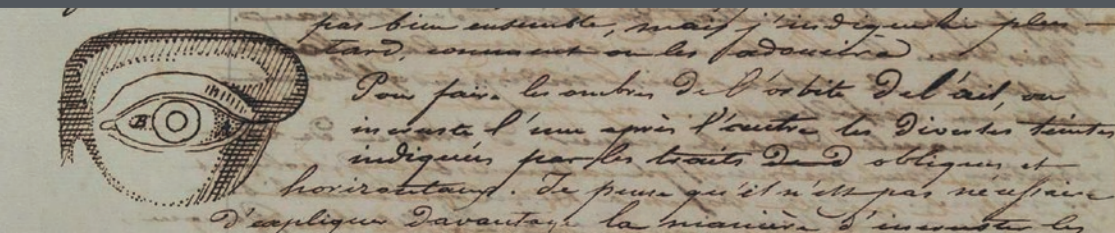 pas bien ensemble, mais j'indiquerai plus
tard, comment on les adoucira
Pour faire les ombres de l'orbite de l'œil, on
incruste l'une après l'autre les diverses teintes
indiquées par les traits obliques et
horizontaux. Je pense qu'il n'est pas nécessaire
d'expliquer davantage la manière d'incruster les
B A